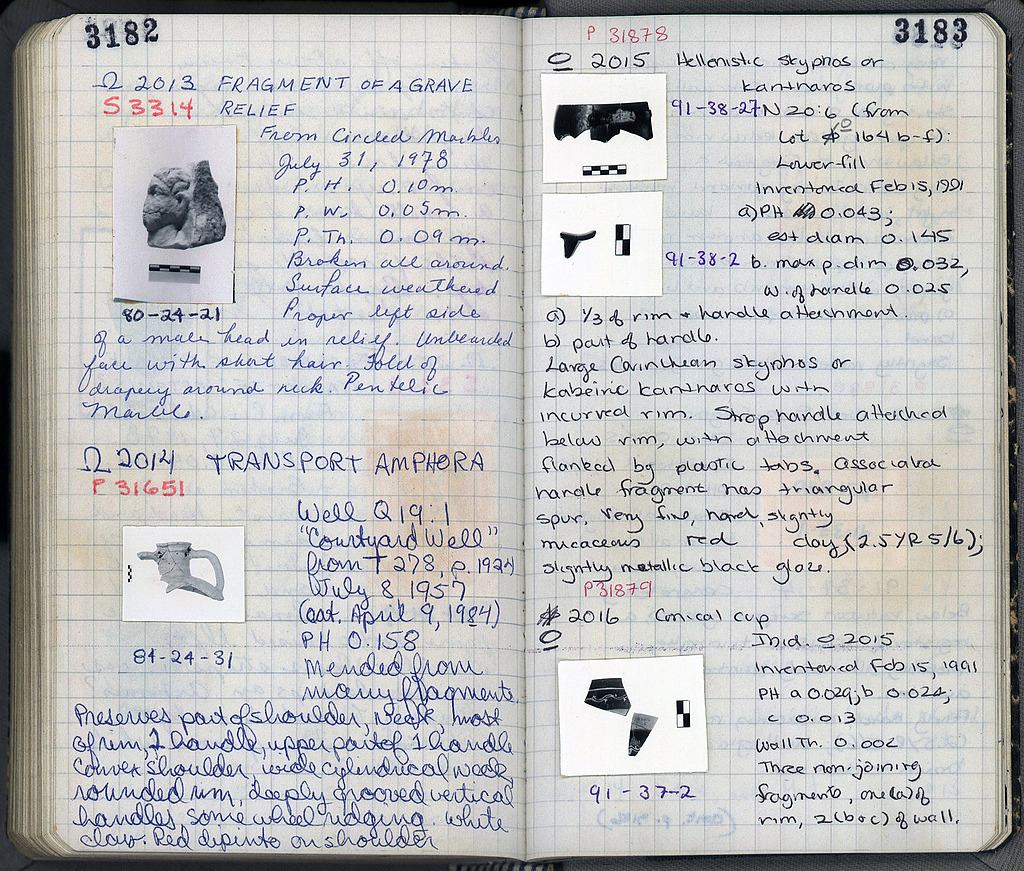 3182
Ω 2013 FRAGMENT OF A GRAVE
S 3314 RELIEF
From Circled Marbles
July 31, 1978
P. H. 0.10 m.
P. W. 0.05 m.
P. Th. 0.09 m.
Broken all around.
Surface weathered
80-24-21 Proper left side
of a male head in relief. Unbearded
face with short hair. Fold of
drapery around neck. Pentelic
Marble.
Ω 2014 TRANSPORT AMPHORA
P 31651
Well Q 19:1
"Courtyard Well"
from T 278, p. 1924
July 8 1957
(cat. April 9, 1984)
PH 0.158
84-24-31 Mended from
many fragments.
Preserves part of shoulder, neck, most
of rim, 1 handle, upper part of 1 handle
Convex shoulder, wide cylindrical neck
rounded rim, deeply grooved vertical
handles some wheel ridging. White
clay. Red dipinto on shoulder
3183
P 31878
O 2015 Hellenistic skyphos or
kantharos
91-38-27 N 20:6 (from
Lot O 164 b-f):
Lower fill
Inventoried Feb 15, 1991
a) PH 0.043;
est diam 0.145
91-38-2 b. max p. dim 0.032,
W. of handle 0.025
a) 1/3 of rim + handle attachment.
b) part of handle.
Large Corinthian skyphos or
Kabeiric kantharos with
incurved rim. Strap handle attached
below rim, with attachment
flanked by plastic tabs. Associated
handle fragment has triangular
spur, Very fine, hard, slightly
micaceous red clay (2.5 YR 5/6);
slightly metallic black glaze.
P 31879
O 2016 Conical cup
Ibid. O 2015
Inventoried Feb 15, 1991
PH a 0.029; b 0.024;
c 0.013
Wall Th. 0.002
Three non-joining
91-37-2 fragments, one (a) of
rim, 2 (b+c) of wall.